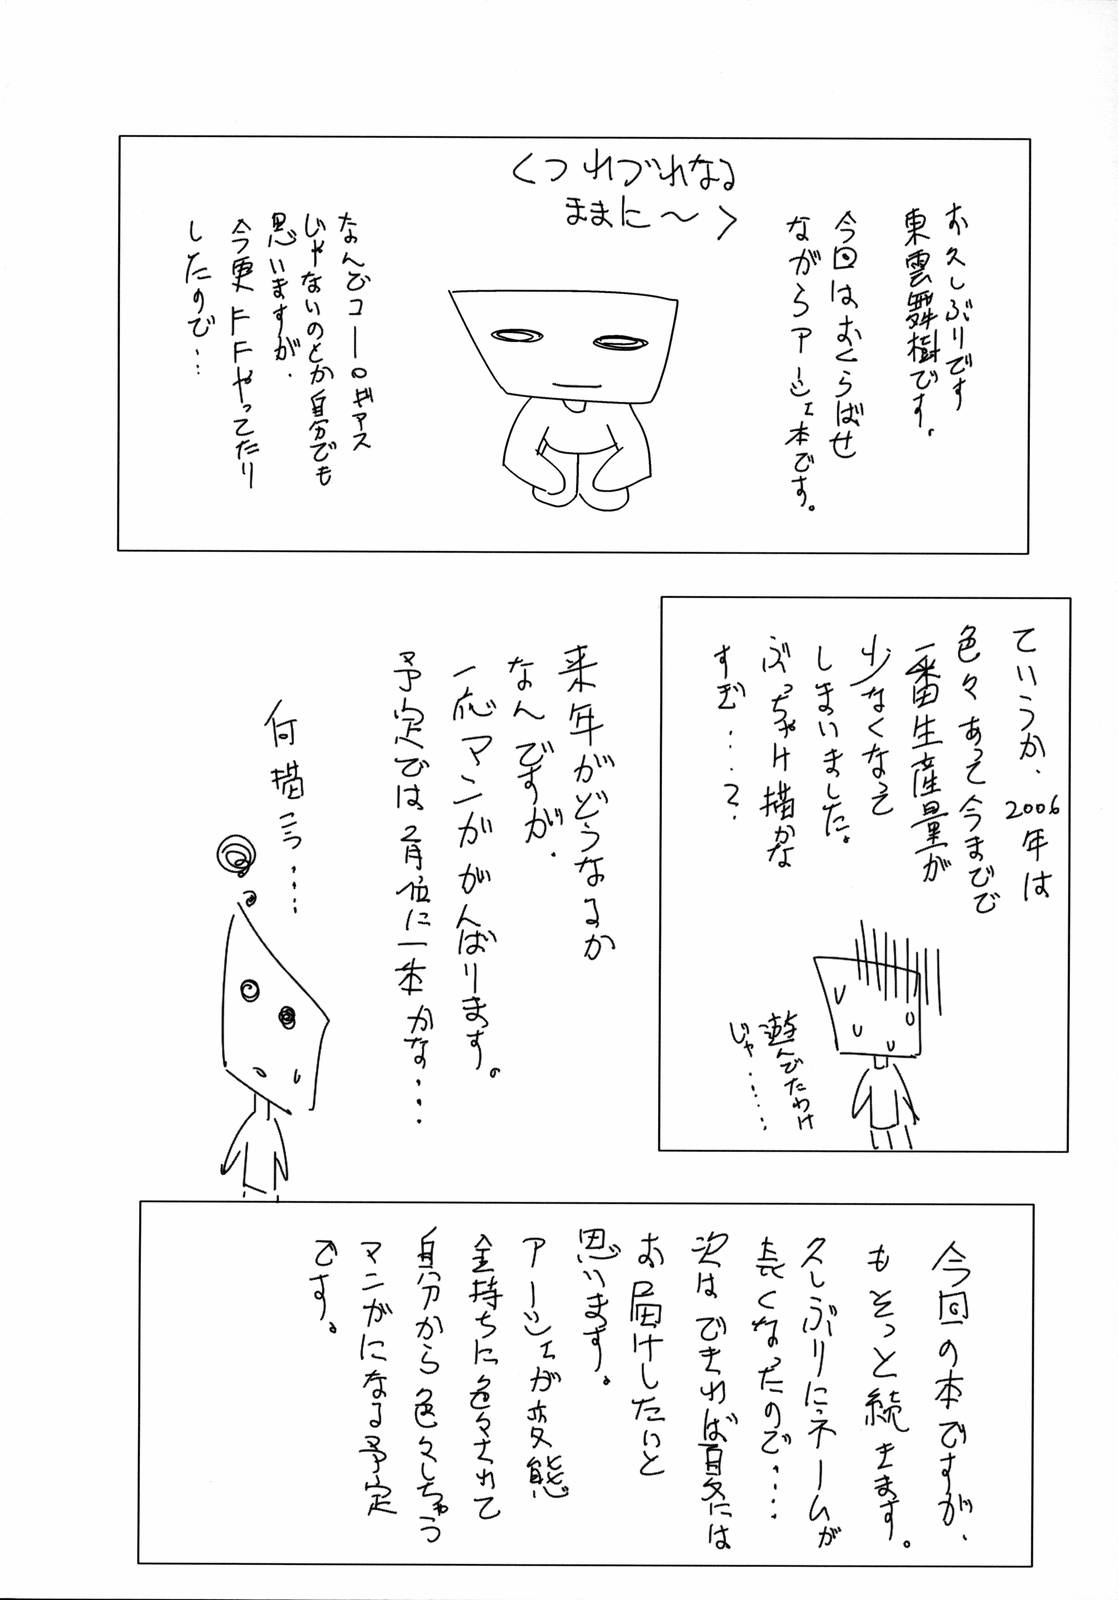 くつれづれなる
ままに～>
お久しぶりです
東雲舞樹です。
今回はおくらばせ
ながらアーシェ本です。
なんでコードギアス
じゃないのとか自分でも
思いますが、
今更FFやってたり
したので…
ていうか、2006年は
色々あって今までで
一番生産量が
少なくなって
しまいました。
ぶっちゃけ描かな
すぎ…?
遊んでたわけ
じゃ……
来年がどうなるか
なんですが、
一応マンガがんばります。
予定では2月位に一本かな…
何描こう…
今回の本ですが、
もそっと続きます。
久しぶりにネームが
長くなったので…
次はできれば夏には
お届けしたいと
思います。
アーシェが変態
金持ちに色々されて
自分から色々しちゃう
マンガになる予定
です。